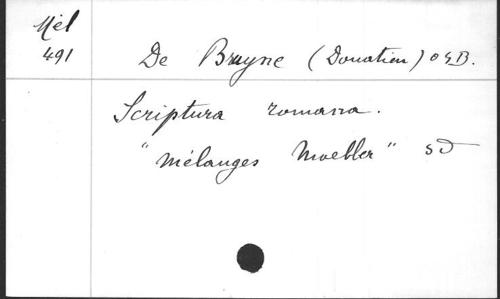 Mél
491
De Bruyne (Donatien) O S B.
Scriptura romana.
"Mélanges Moeller" sd